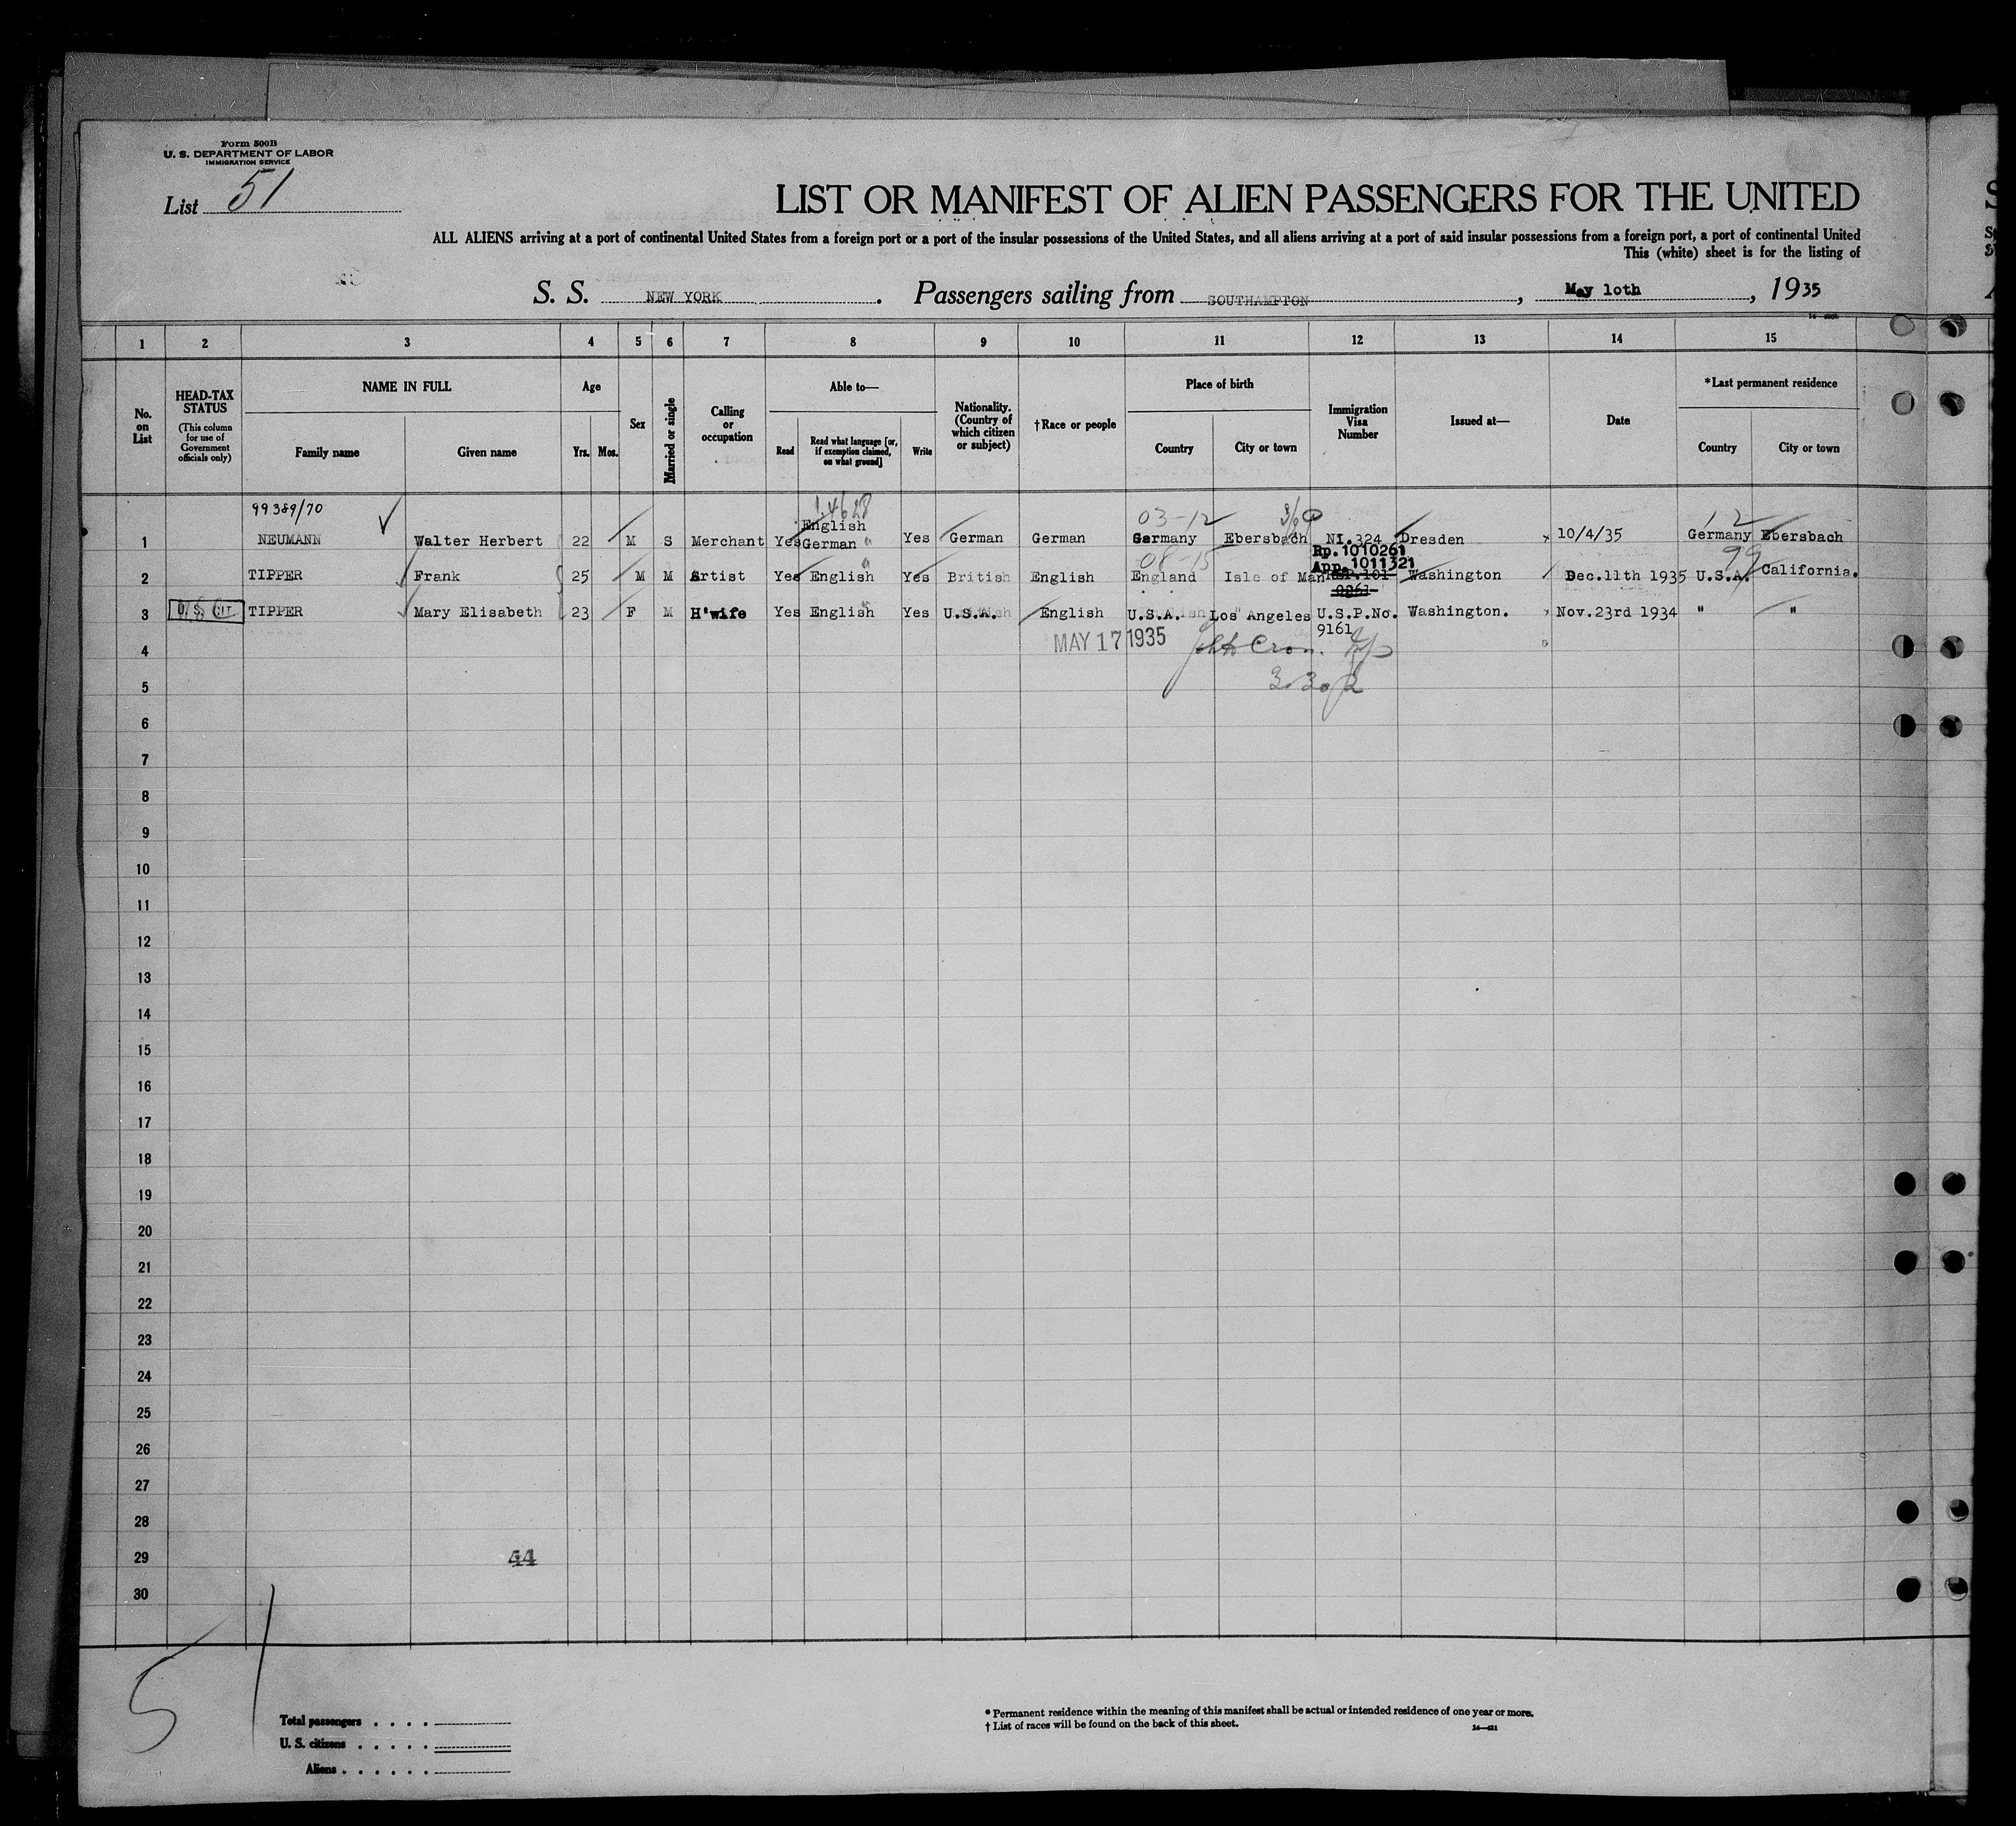 Form 500B
U. S. DEPARTMENT OF LABOR
IMMIGRATION SERVICE
List 51
LIST OR MANIFEST OF ALIEN PASSENGERS FOR THE UNITED
ALL ALIENS arriving at a port of continental United States from a foreign port or a port of the insular possessions of the United States, and all aliens arriving at a port of said insular possessions from a foreign port, a port of continental United
This (white) sheet is for the listing of
S. S. NEW YORK. Passengers sailing from SOUTHAMPTON, May 1oth, 1935
1 2 3 4 5 6 7 8 9 10 11 12 13 14 15
No. on List
HEAD-TAX STATUS
(This column for use of Government officials only)
NAME IN FULL
Family name Given name
Age
Yrs. Mos.
Sex
Married or single
Calling or occupation
Able to—
Read Read what language [or, if exemption claimed, on what ground] Write
Nationality. (Country of which citizen or subject)
†Race or people
Place of birth
Country City or town
Immigration Visa Number
Issued at—
Date
*Last permanent residence
Country City or town
99389/70
03-12
12
1 NEUMANN Walter Herbert 22 M S Merchant Yes English German Yes German German Germany Ebersbach NI.324 Dresden 10/4/35 Germany Ebersbach
Rp.1010261
App.1011321
08-15
99
2 TIPPER Frank 25 M M Artist Yes English Yes British English England Isle of Man Washington Dec.11th 1935 U.S.A. California.
3 U. S. CIT. TIPPER Mary Elisabeth 23 F M H'wife Yes English Yes U.S.A. English U.S.A. Los Angeles U.S.P.No. 9161 Washington. Nov.23rd 1934 " "
4 MAY 17 1935
5
6
7
8
9
10
11
12
13
14
15
16
17
18
19
20
21
22
23
24
25
26
27
28
29 44
30
51
Total passengers
U. S. citizens
Aliens
* Permanent residence within the meaning of this manifest shall be actual or intended residence of one year or more.
† List of races will be found on the back of this sheet.